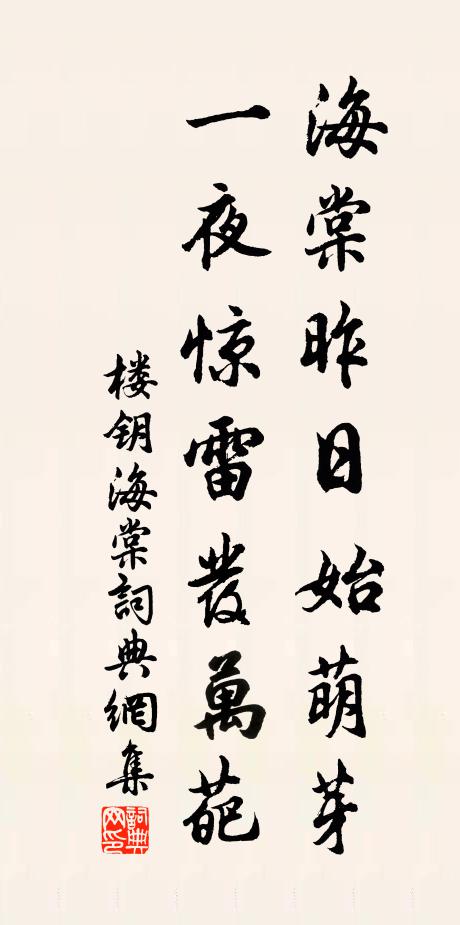 海棠昨日始萌芽
一夜惊雷發萬葩
楼钥海棠詞典網集
詞典網印